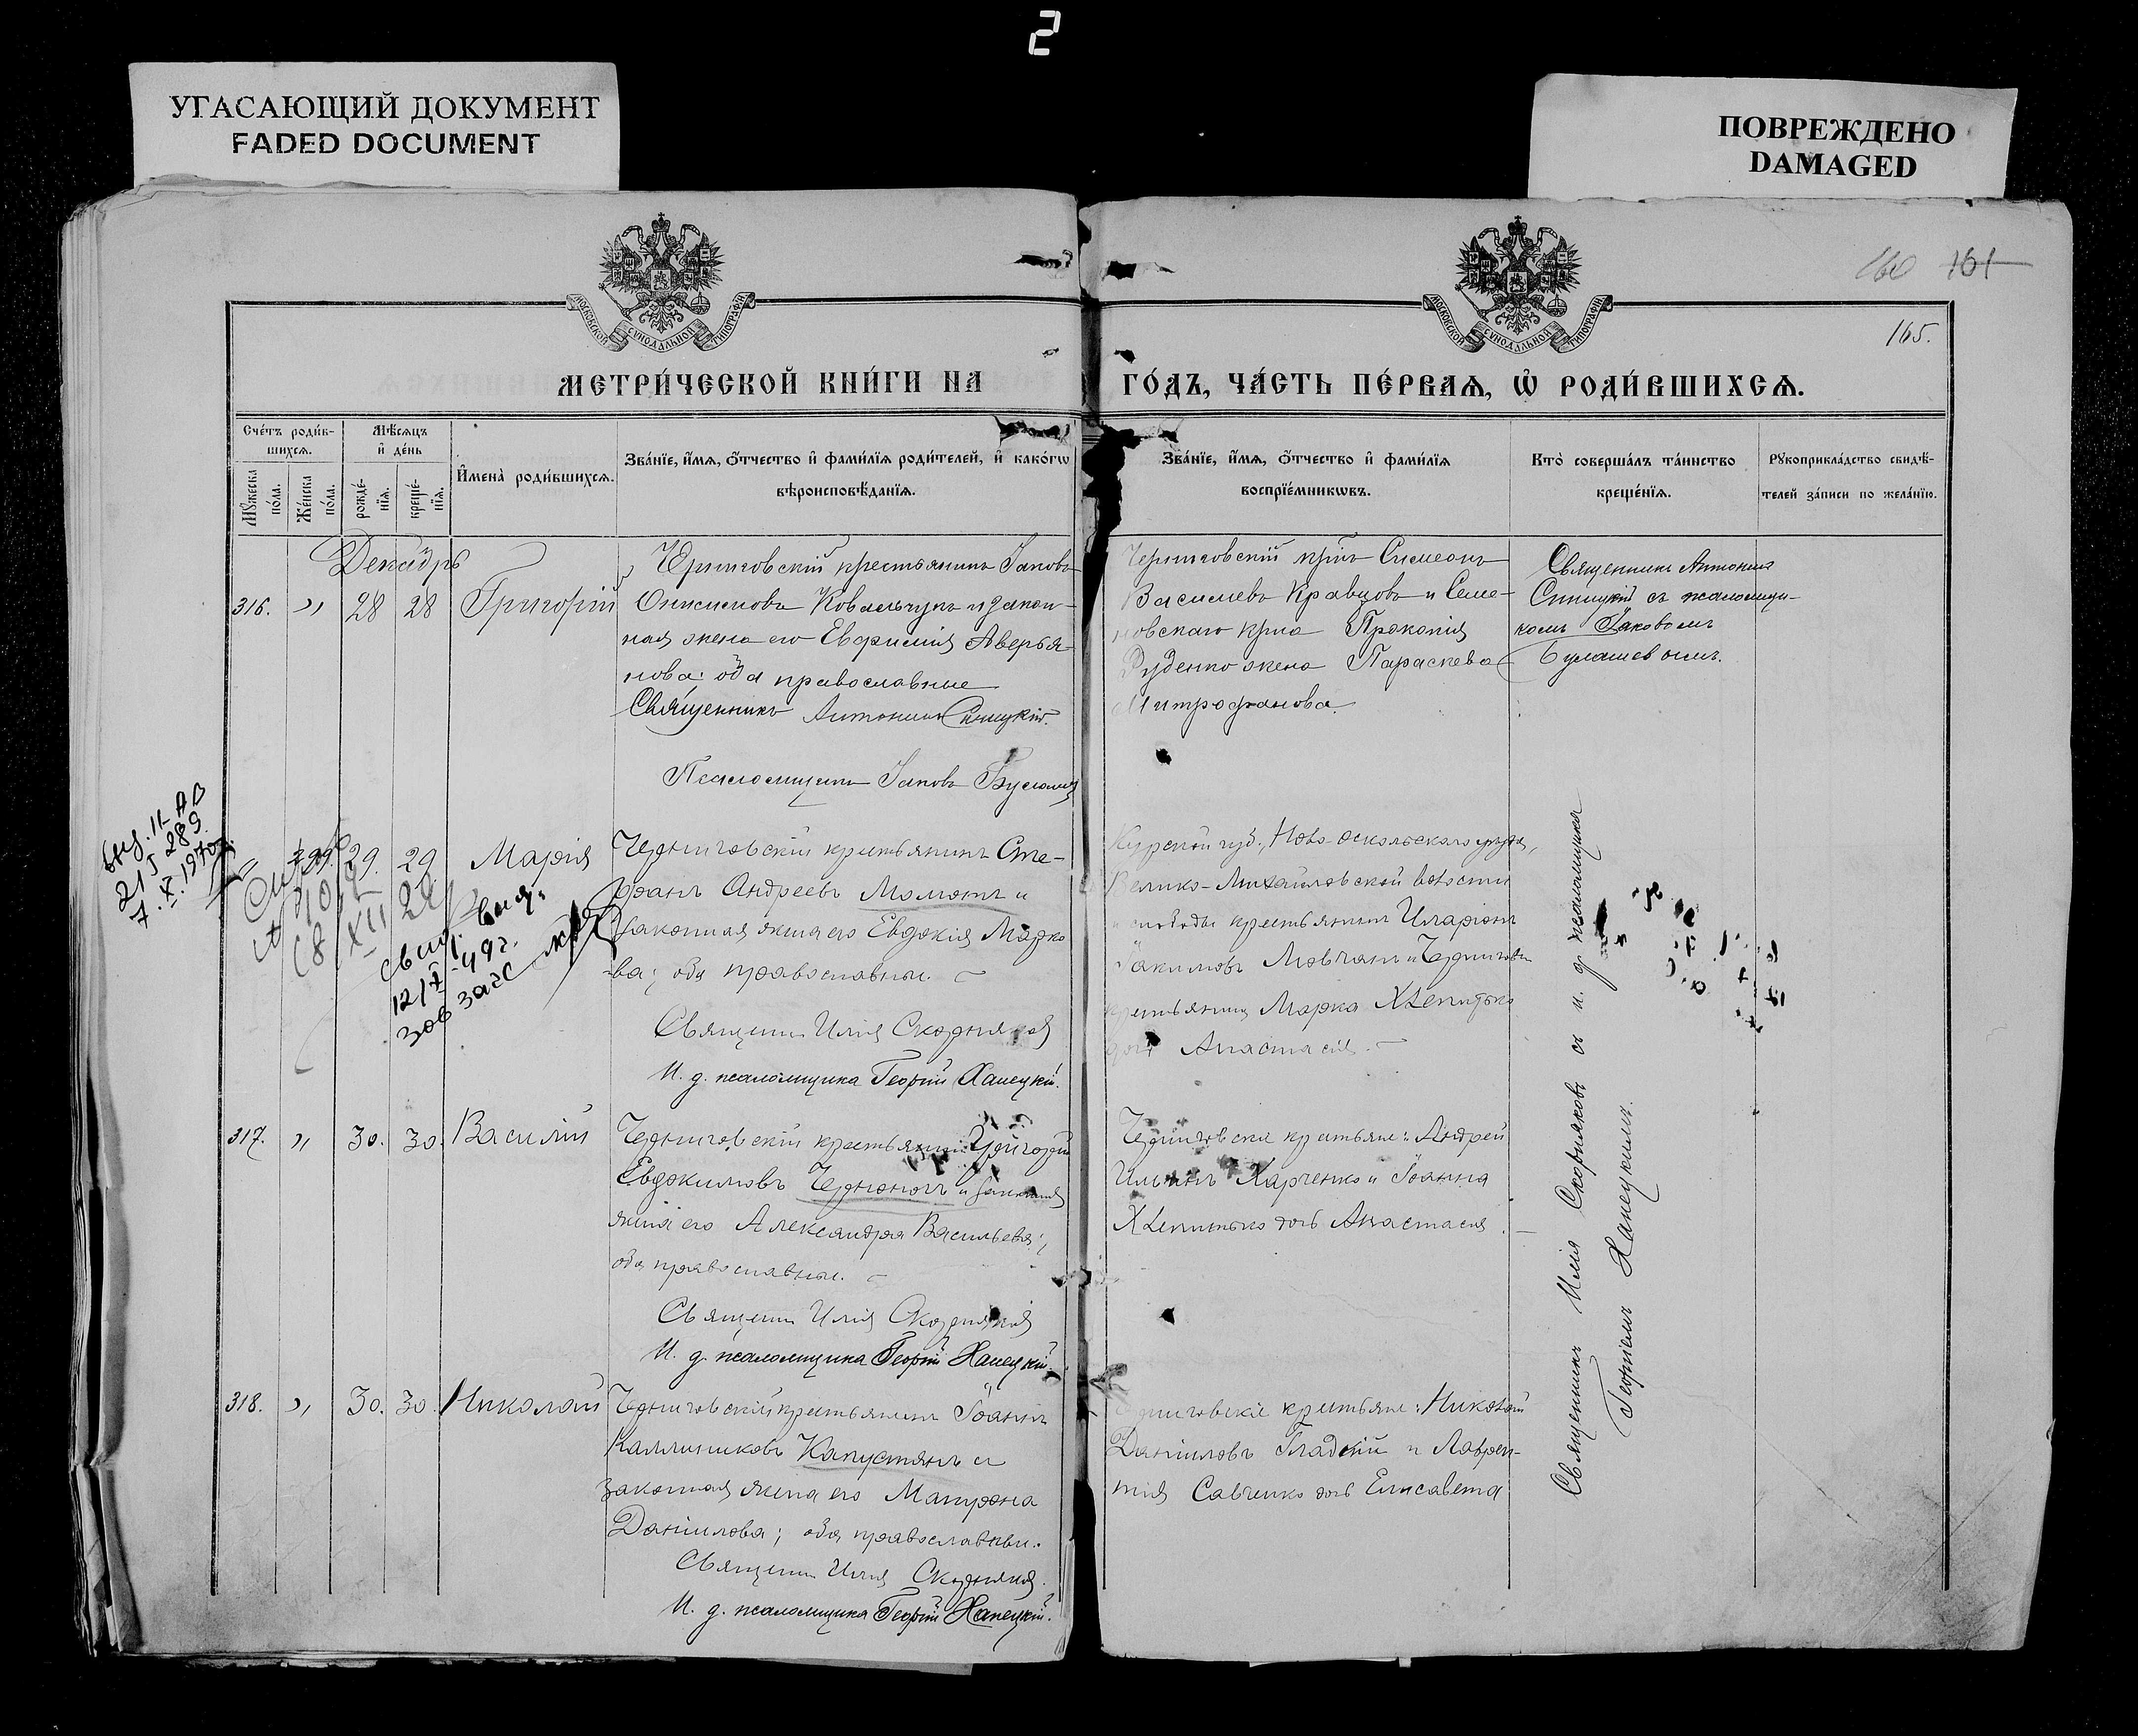 2
УГАСАЮЩИЙ ДОКУМЕНТ
FADED DOCUMENT
ПОВРЕЖДЕНО
DAMAGED
160 161
165.
МОСКОВСКОЙ СѴНОДАЛЬНОЙ ТИПОГРАФІИ
МОСКОВСКОЙ СѴНОДАЛЬНОЙ ТИПОГРАФІИ
МЕТРИ́ЧЕСКОЙ КНИ́ГИ НА ГО́ДЪ, ЧА́СТЬ ПЕ́РВАѦ, Ѡ҆ РОДИ́ВШИХСѦ.
Сче́тъ роди́в-
шихсѧ.
Мѣ́сѧцъ
и҆ де́нь
Мꙋ́жеска
по́ла.
Же́нска
по́ла.
рожде́-
нїѧ.
креще́-
нїѧ.
И҆мена̀ роди́вшихсѧ.
Зва́нїе, и҆́мѧ, ѻ҆́тчество и҆ фами́лїѧ роди́телей, и҆ како́гѡ
вѣроисповѣ́данїѧ.
Зва́нїе, и҆́мѧ, ѻ҆́тчество и҆ фами́лїѧ
воспрїе́мникѡвъ.
Кто̀ соверша́лъ та́инство
креще́нїѧ.
Рꙋкоприкла́дство свидѣ́-
телей за́писи по жела́нїю.
Декабрь
316. " 28 28 Григорій
Черниговскій крестьянинъ Іаковъ
Онисимовъ Ковальчукъ и закон-
ная жена его Евфимія Аверья-
нова: оба православные
Священникъ Антоній Синицкій.
Псаломщикъ Іаковъ
Черниговскій кр-нъ Симеонъ
Василіевъ Кравцовъ и Семе-
новскаго кр-на Прокопія
Руденко жена Параскева
Митрофанова.
Священникъ Антоній
Синицкій съ псаломщи-
комъ Іаковомъ
29. 29. Марія
Черниговскій крестьянинъ Сте-
фанъ Андреевъ Момотъ и
законная жена его Евдокія Марко-
ва; оба православные.
Священ. Илія Скорняковъ
И. д. псаломщика Георгій Ханецкій.
Курской губ., Ново-оскольскаго уѣзда,
Велико-Михайловской волости
и слободы крестьянинъ Иларіонъ
Іакимовъ Мовчанъ и Черниговск.
крестьянина Марка
дочь Анастасія.
317. " 30. 30. Василій
Черниговскій крестьянинъ Григорій
Евдокимовъ и законная
жена его Александра Васильева;
оба православные.
Священ. Илія Скорняковъ
И. д. псаломщика Георгій Ханецкій.
Черниговскіе крестьяне: Андрей
Ильинъ Харченко и Іоанна
дочь Анастасія.
318. " 30. 30. Николай
Черниговскій крестьянинъ Іоаннъ
Каллиниковъ Капустянъ и
законная жена его Матрона
Даніилова; оба православные.
Священ. Илія Скорняковъ.
И. д. псаломщика Георгій Ханецкій.
Черниговскіе крестьяне: Николай
Даніиловъ Гладкій и Лаврен-
тія Савченко дочь Елисавета
Священникъ Илія Скорняковъ съ и. д. псаломщика
Георгіемъ Ханецкимъ.